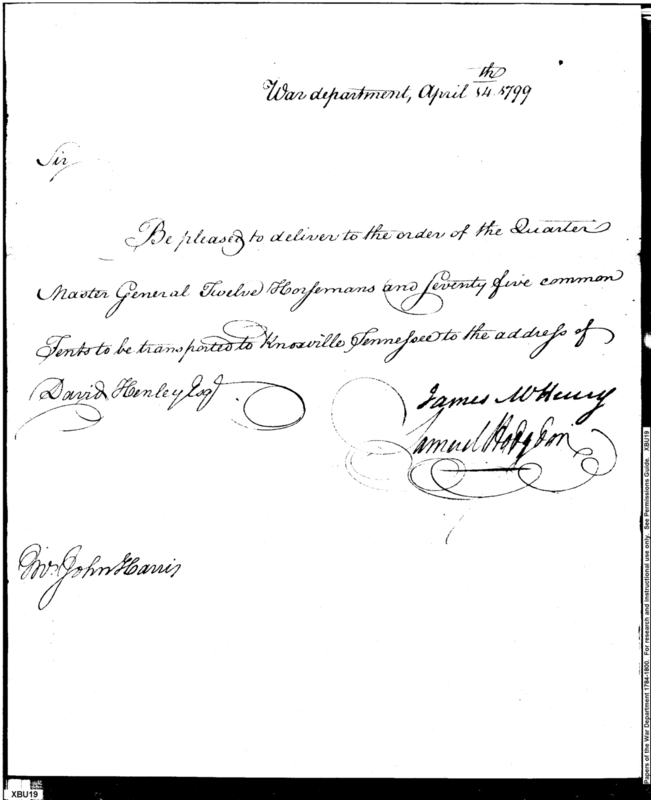 War department, April 14th 1799
Sir
Be pleased to deliver to the order of the Quarter
Master General Twelve Horsemans and Seventy five common
Tents to be transported to Knoxville Tennessee to the address of
David Henley Esqr
James McHenry
Samuel Hodgdon
Mr. John Harris
XBU19
Papers of the War Department 1784-1800. For research and instructional use only. See Permissions Guide. XBU19